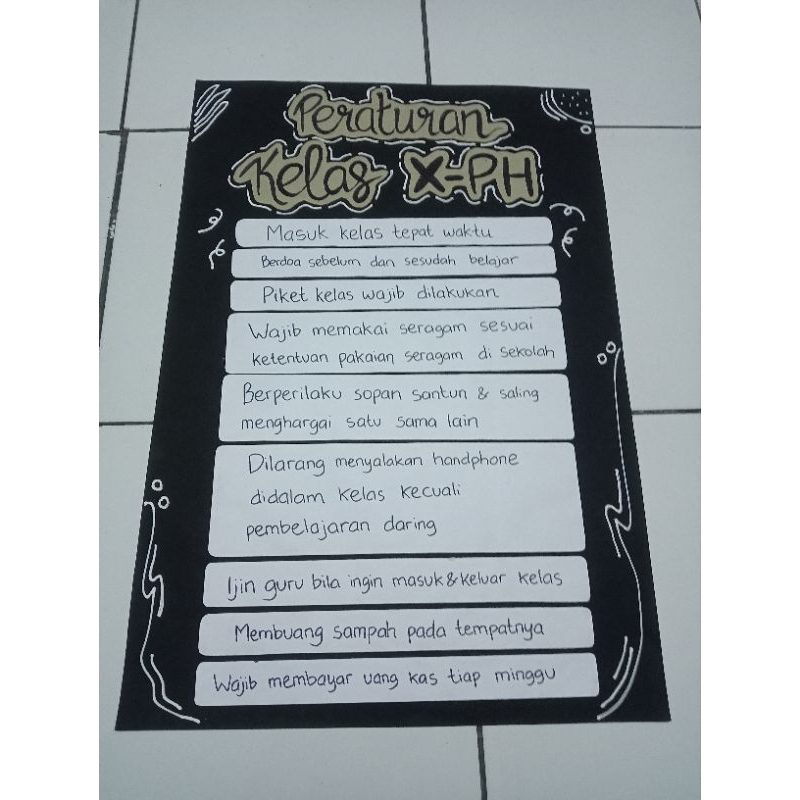 Peraturan
Kelas X-PH
Masuk kelas tepat waktu
Berdoa sebelum dan sesudah belajar
Piket kelas wajib dilakukan
Wajib memakai seragam sesuai
ketentuan pakaian seragam di sekolah
Berperilaku sopan santun & saling
menghargai satu sama lain
Dilarang menyalakan handphone
didalam kelas kecuali
pembelajaran daring
Ijin guru bila ingin masuk & keluar kelas
Membuang sampah pada tempatnya
Wajib membayar uang kas tiap minggu